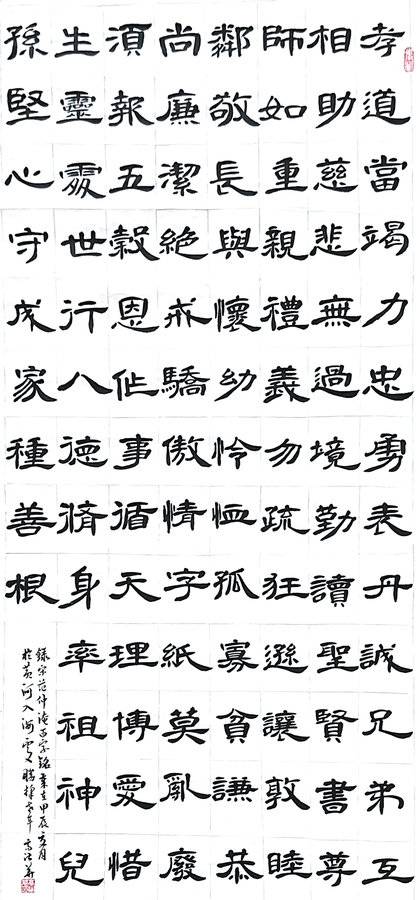 孝道當竭力忠勇表丹誠兄弟互
相助慈悲無過境勤讀聖賢書尊
師如重親禮義勿疏狂遜讓敦睦
鄰敬長與懷幼怜恤孤寡貧謙恭
尚廉潔絕戒驕傲情字紙莫亂廢
湏報五穀恩作事循天理博愛惜
生靈處世行八德脩身率祖神兒
孫堅心守成家種善根
錄宋范仲淹百字銘歲在甲辰月
於黃河入海